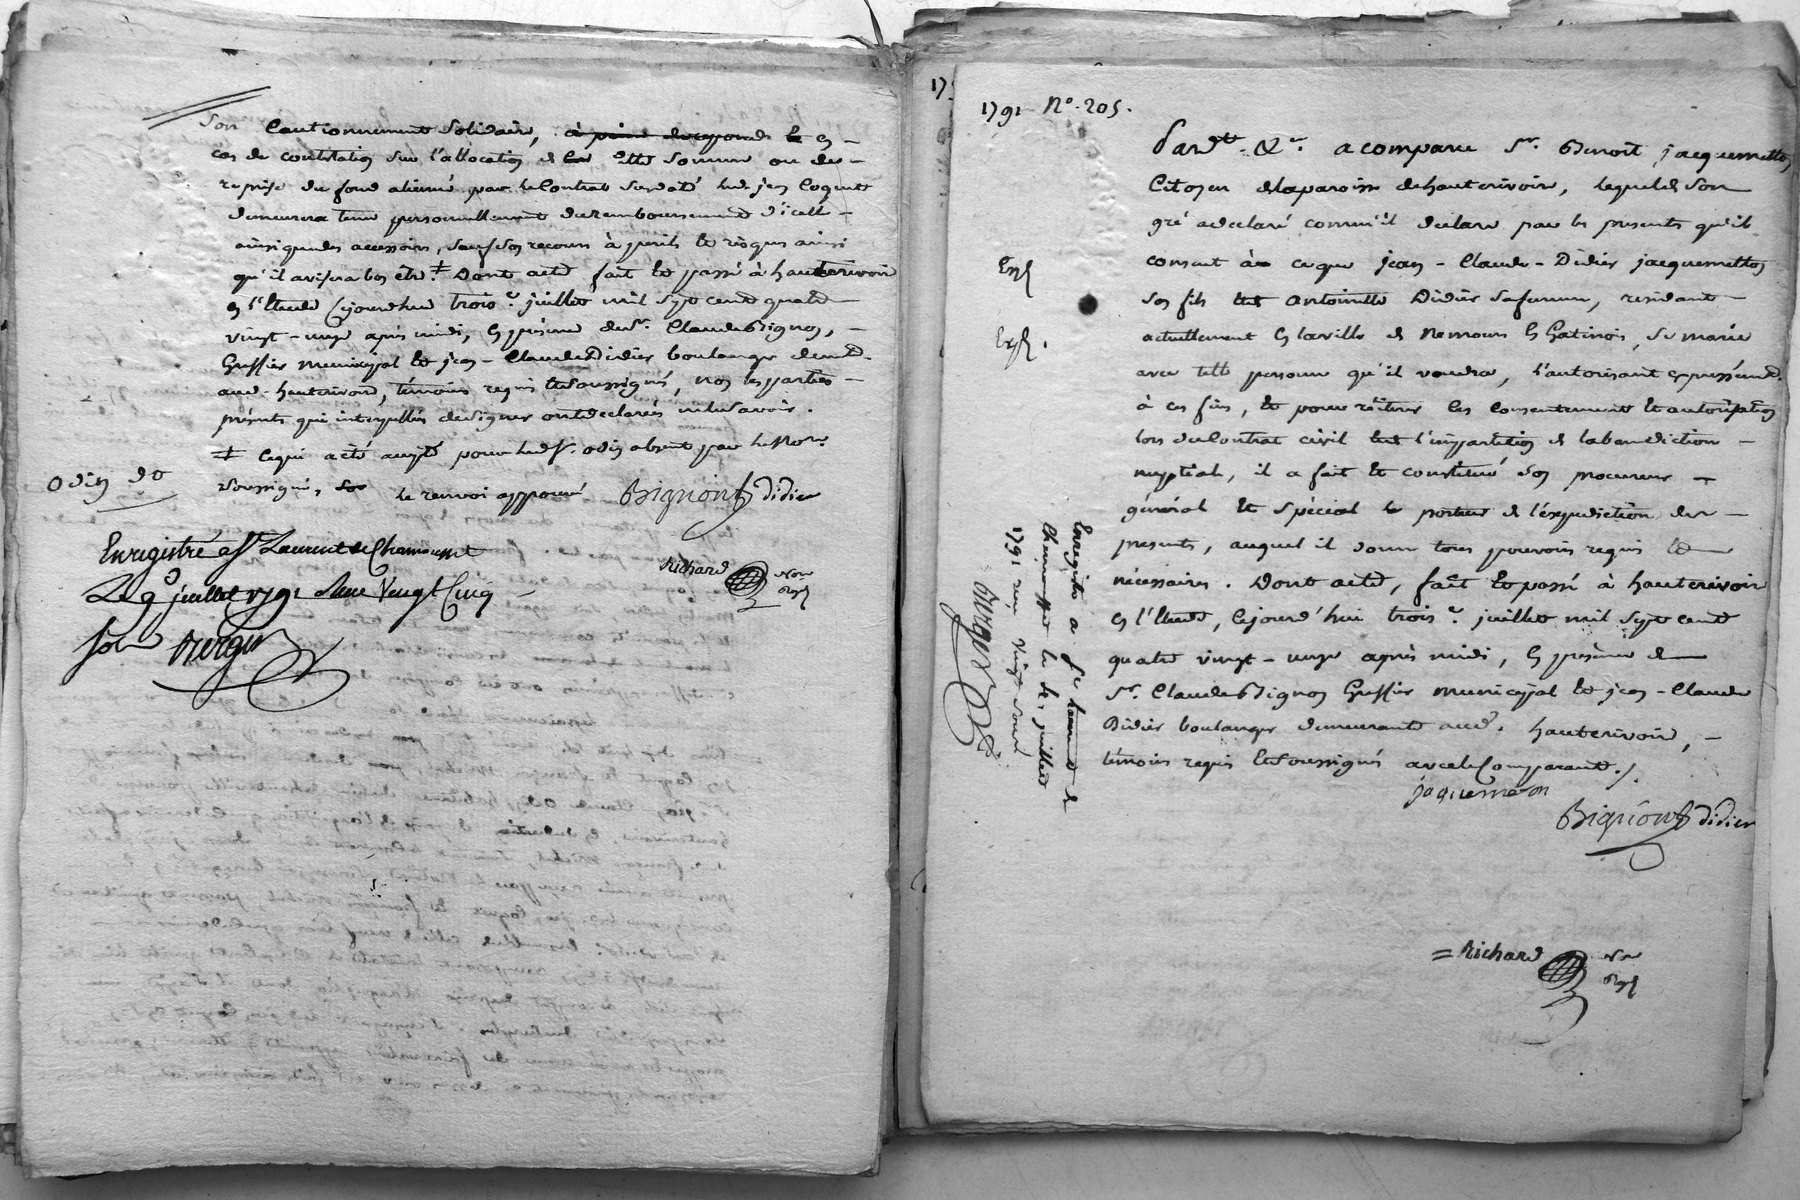 Son Cautionnement Solidaire, à peine de repondre le en
cas de contestation sur l'allocation de cette somme ou de
reprise du fond aliéné par le Contrat susdaté led. jean Coquet
demeurera tenu personnellement du remboursement d'icelle
ainsi que des accessoires, sauf son recours à périls et risques ainsi
qu'il avisera bon être. ‡ Dont acte fait et passé à hauterivoire
en l'Etude Cejourd'hui trois.e juillet mil sept cent quatre
vingt-onze après midi, en présence de Sr. Claude Bignon,
Greffier municipal et jean-Claude Didier boulanger demt.
aud. hauterivoire, témoins requis et soussignés, non les parties
présents qui interpellés de signer ont déclarées ne le savoir.
‡ Ce qui a été accepté pour led. Sr. odin absent par le Nore
soussigné, le renvoi approuvé Bignon Didier
Odin
Richard Nore
Enregistré a St Laurent de Chamousset
Le 9 juillet 1791 Reçu Vingt Cinq
Sols Burgos
1791 No. 205.
Pardt. &r. a comparu Sr. Benoît jacquemetton
Citoyen de la paroisse de hauterivoire, lequel de son
gré a déclaré comm'il déclare par les présentes qu'il
consent à ce que jean-Claude-Didier jacquemetton
son fils et antoinette Didier sa femme, résidant
actuellement en la ville de Nemours en Gatinois, se marie
avec telle personne qu'il voudra, l'autorisant expressément
à ces fins, et pour réitérer les consentement et autorisation
lors du Contrat civil et l'impartition de la bénédiction
nuptial, il a fait et constitué son procureur
général et spécial le porteur de l'éxpédiction des
présents, auquel il donne tous pouvoirs requis et
nécessaires. Dont acte, fait et passé à hauterivoire
en l'Etude, Cejourd'hui trois.e juillet mil sept cent
quatre vingt-onze après midi, en présence de
Sr. Claude Bignon Greffier municipal et jean-Claude
Didier boulanger demeurant aud. hauterivoire,
témoins requis et soussignés avec le Comparant./.
jaquemeton
Bignon Didier
Richard Nore
Exp
Exp.
Enregistré a St Laurent de
Chamousset le juillet
1791 reçu Vingt sous
Burgos